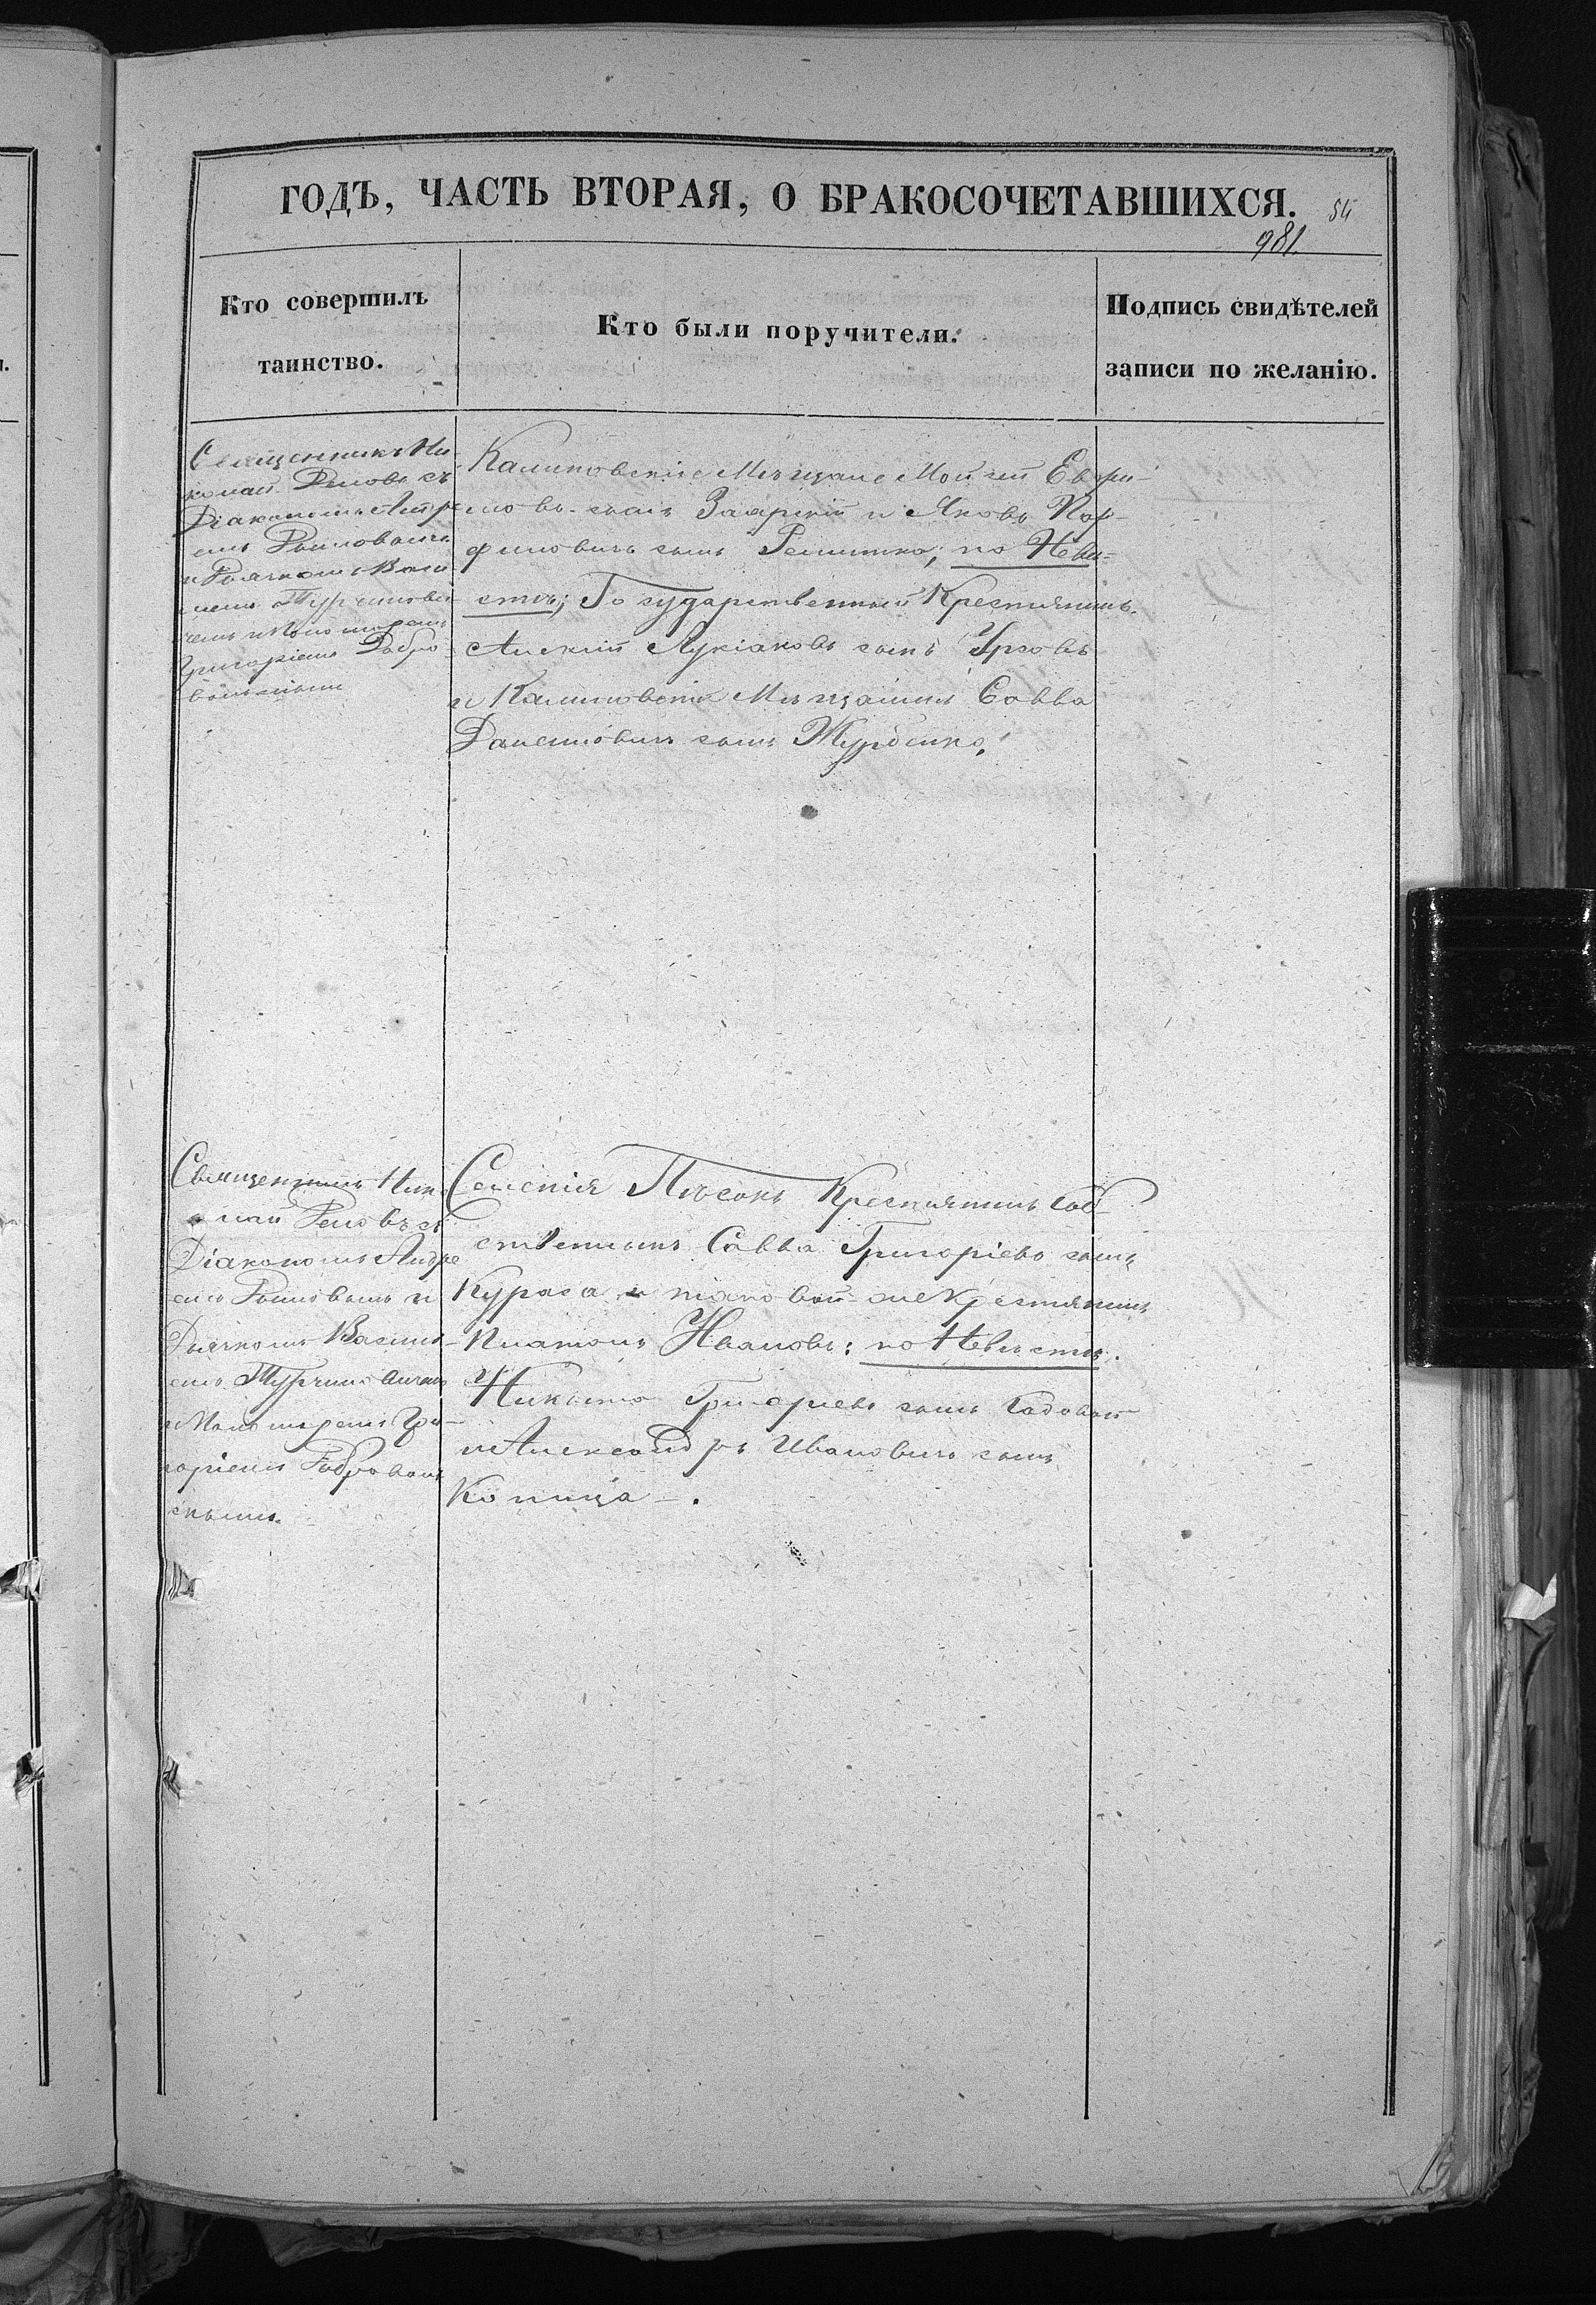 ГОДЪ, ЧАСТЬ ВТОРАЯ, О БРАКОСОЧЕТАВШИХСЯ.
54
981.
Кто совершилъ
таинство.
Кто были поручители.
Подпись свидѣтелей
записи по желанію.
Священникъ Ни-
колай съ
Діакономъ Андре
емъ
и Дьячкомъ Васи
лiемъ
чемъ и Пономаремъ
Григоріемъ Добро-
вольскимъ
Калиновскіе Мѣщане Мойсей Евфи-
мовъ сынъ Заярній и Яковъ Пор-
филовичъ сынъ по Невѣ-
стѣ; Государственный Крестьянинъ
Алексій Лукіановъ сынъ
и Калиновскій Мѣщанинъ Савва
Даниловичъ сынъ Журбенко.
Священникъ Нико
лай съ
Діакономъ Андре
емъ и
Дьячкомъ Васили-
емъ
и Пономаремъ Гри-
горіемъ Добровол
скимъ.
Селенія Пѣсокъ Крестьянинъ Соб-
ственникъ Савва Григоріевъ сынъ
Курага и таковой же Крестьянинъ
Платонъ Ивановъ: по Невѣстѣ.
Никита Григоріевъ сынъ Садовой
и Александръ Ивановичъ сынъ
Копица.